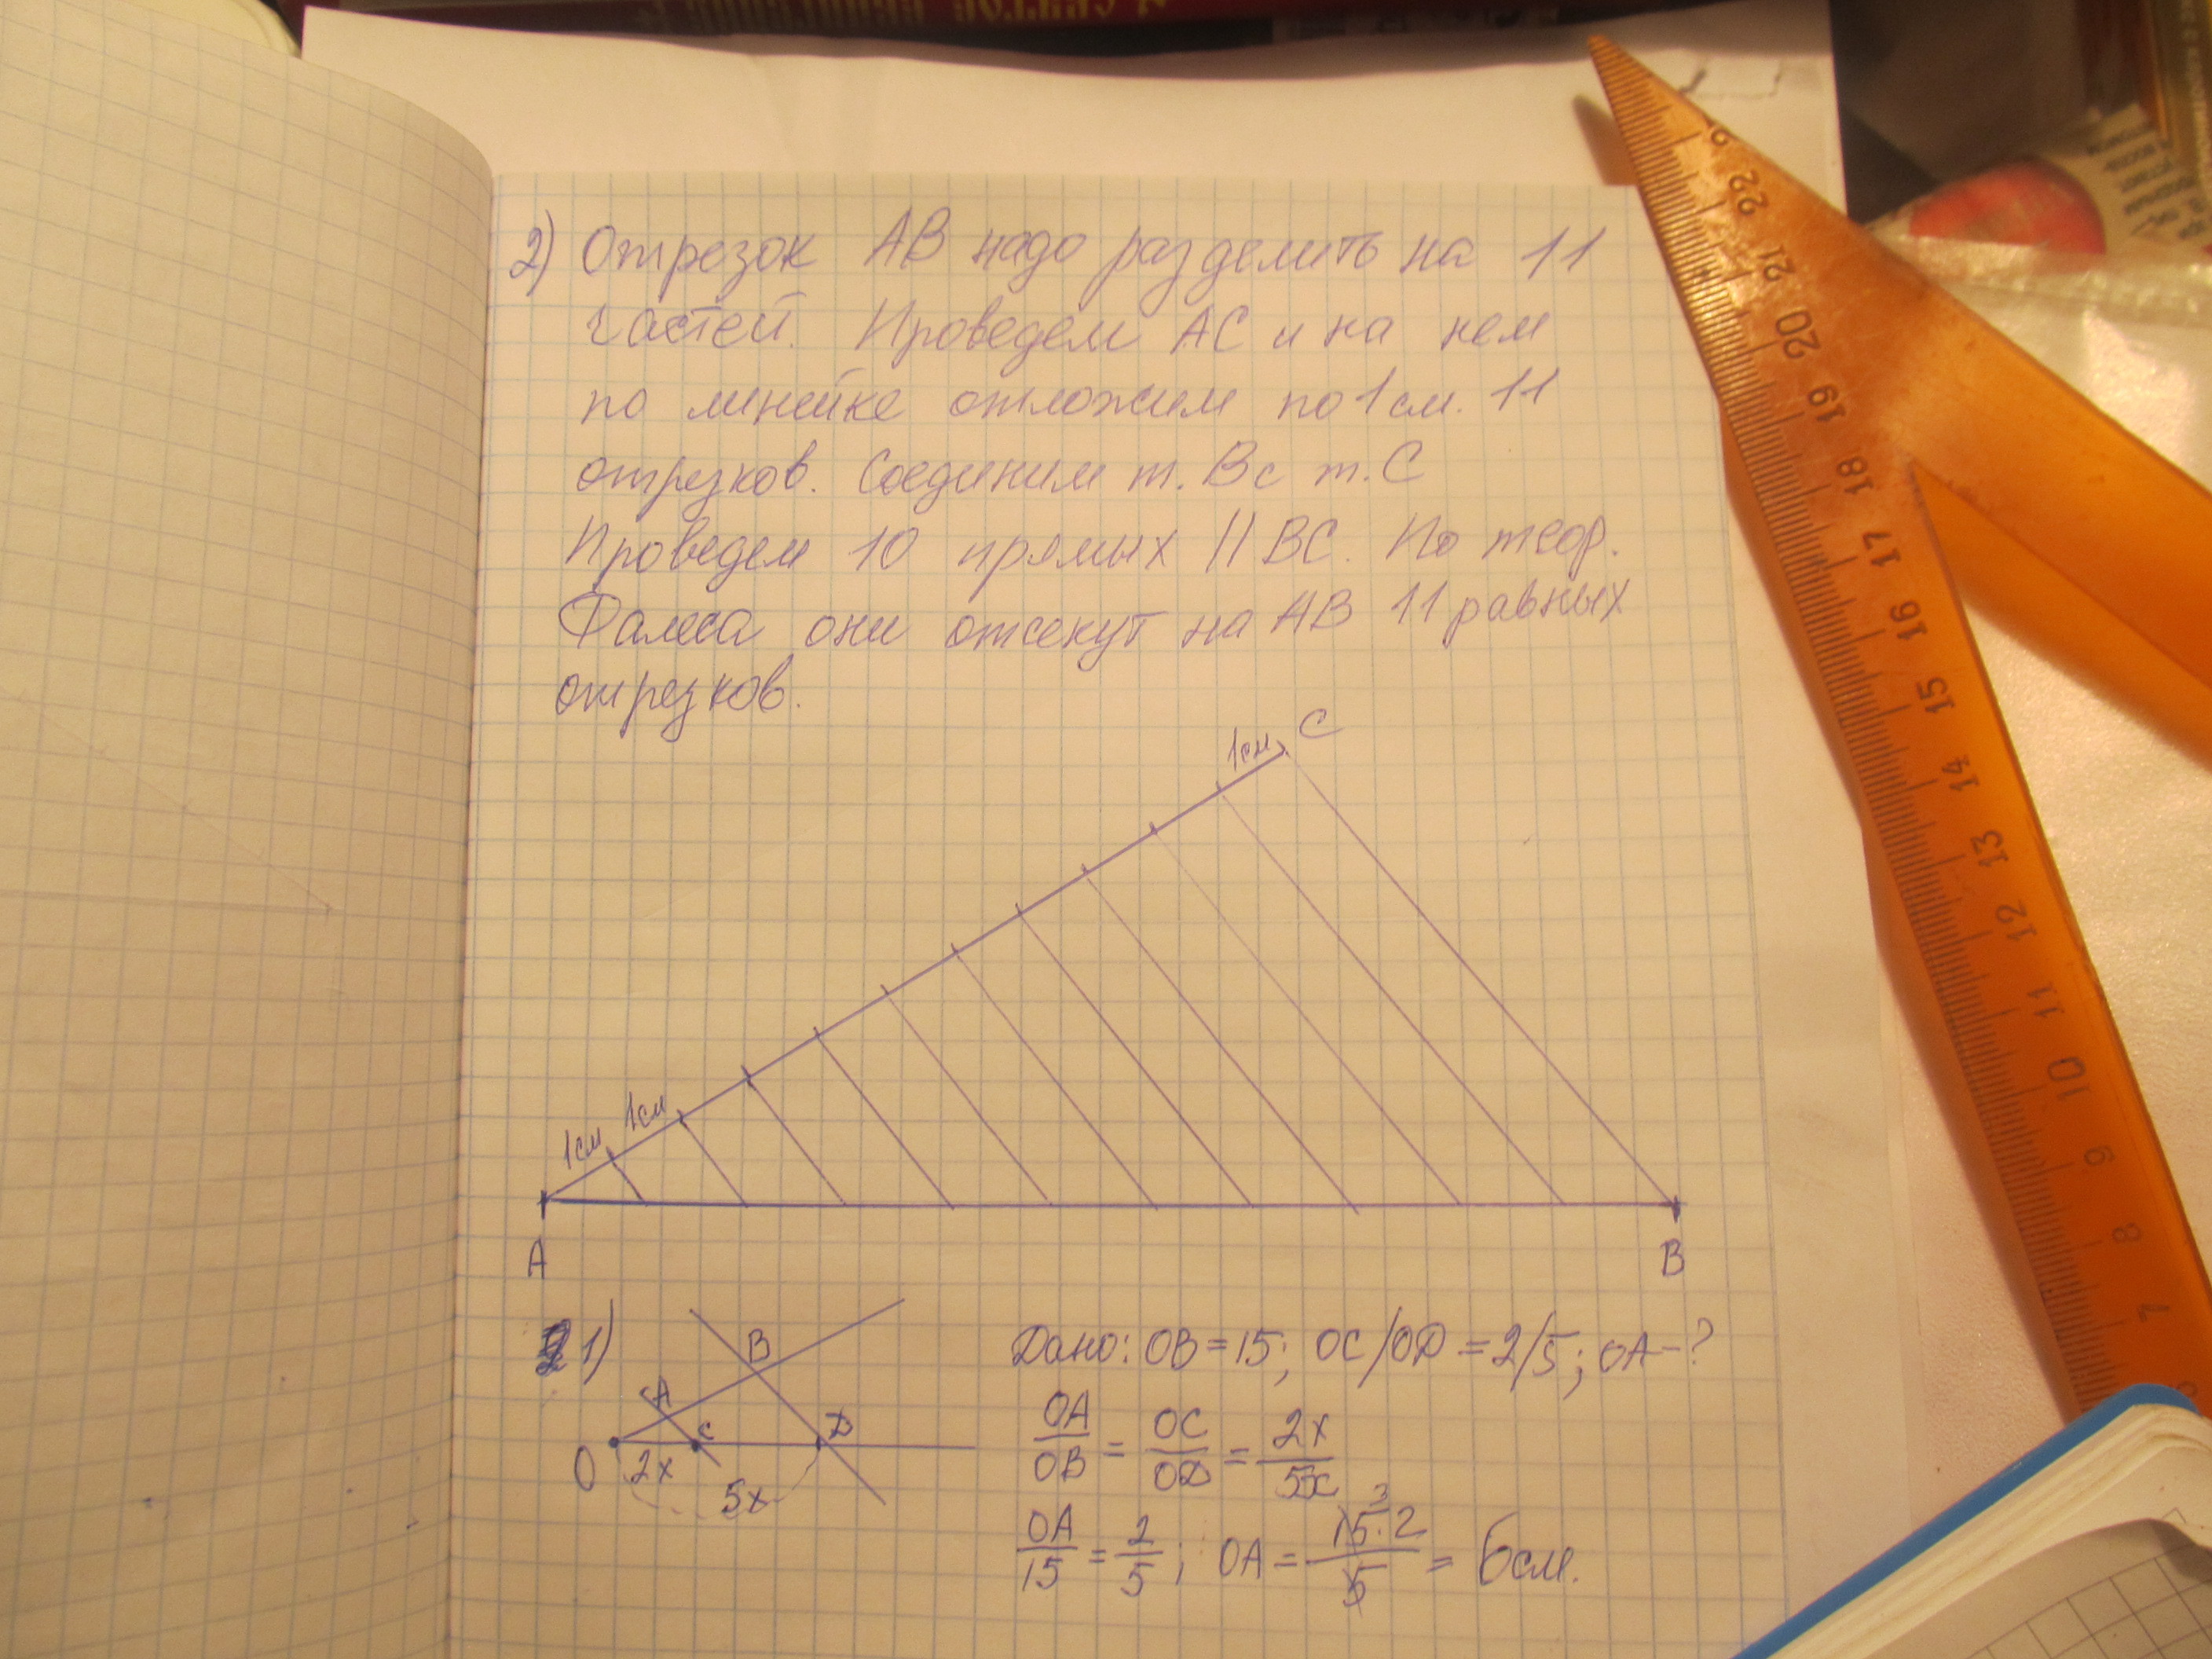 2) Отрезок АВ надо разделить на 11
частей. Проведем АС и на нем
по линейке отложим по 1 см. 11
отрезков. Соединим т. В с т. С
Проведем 10 прямых || ВС. По теор.
Фалеса они отсекут на АВ 11 равных
отрезков.
1см
С
1см
1см
А
В
1)
В
А
С
D
О
2x
5x
Дано: ОВ = 15; ОС/ОD = 2/5; ОА - ?
ОА/ОВ = ОС/ОD = 2x/5x
ОА/15 = 2/5; ОА = 15·2/5 = 6см.
3
22
21
20
19
18
17
16
15
14
13
12
11
10
9
8
7